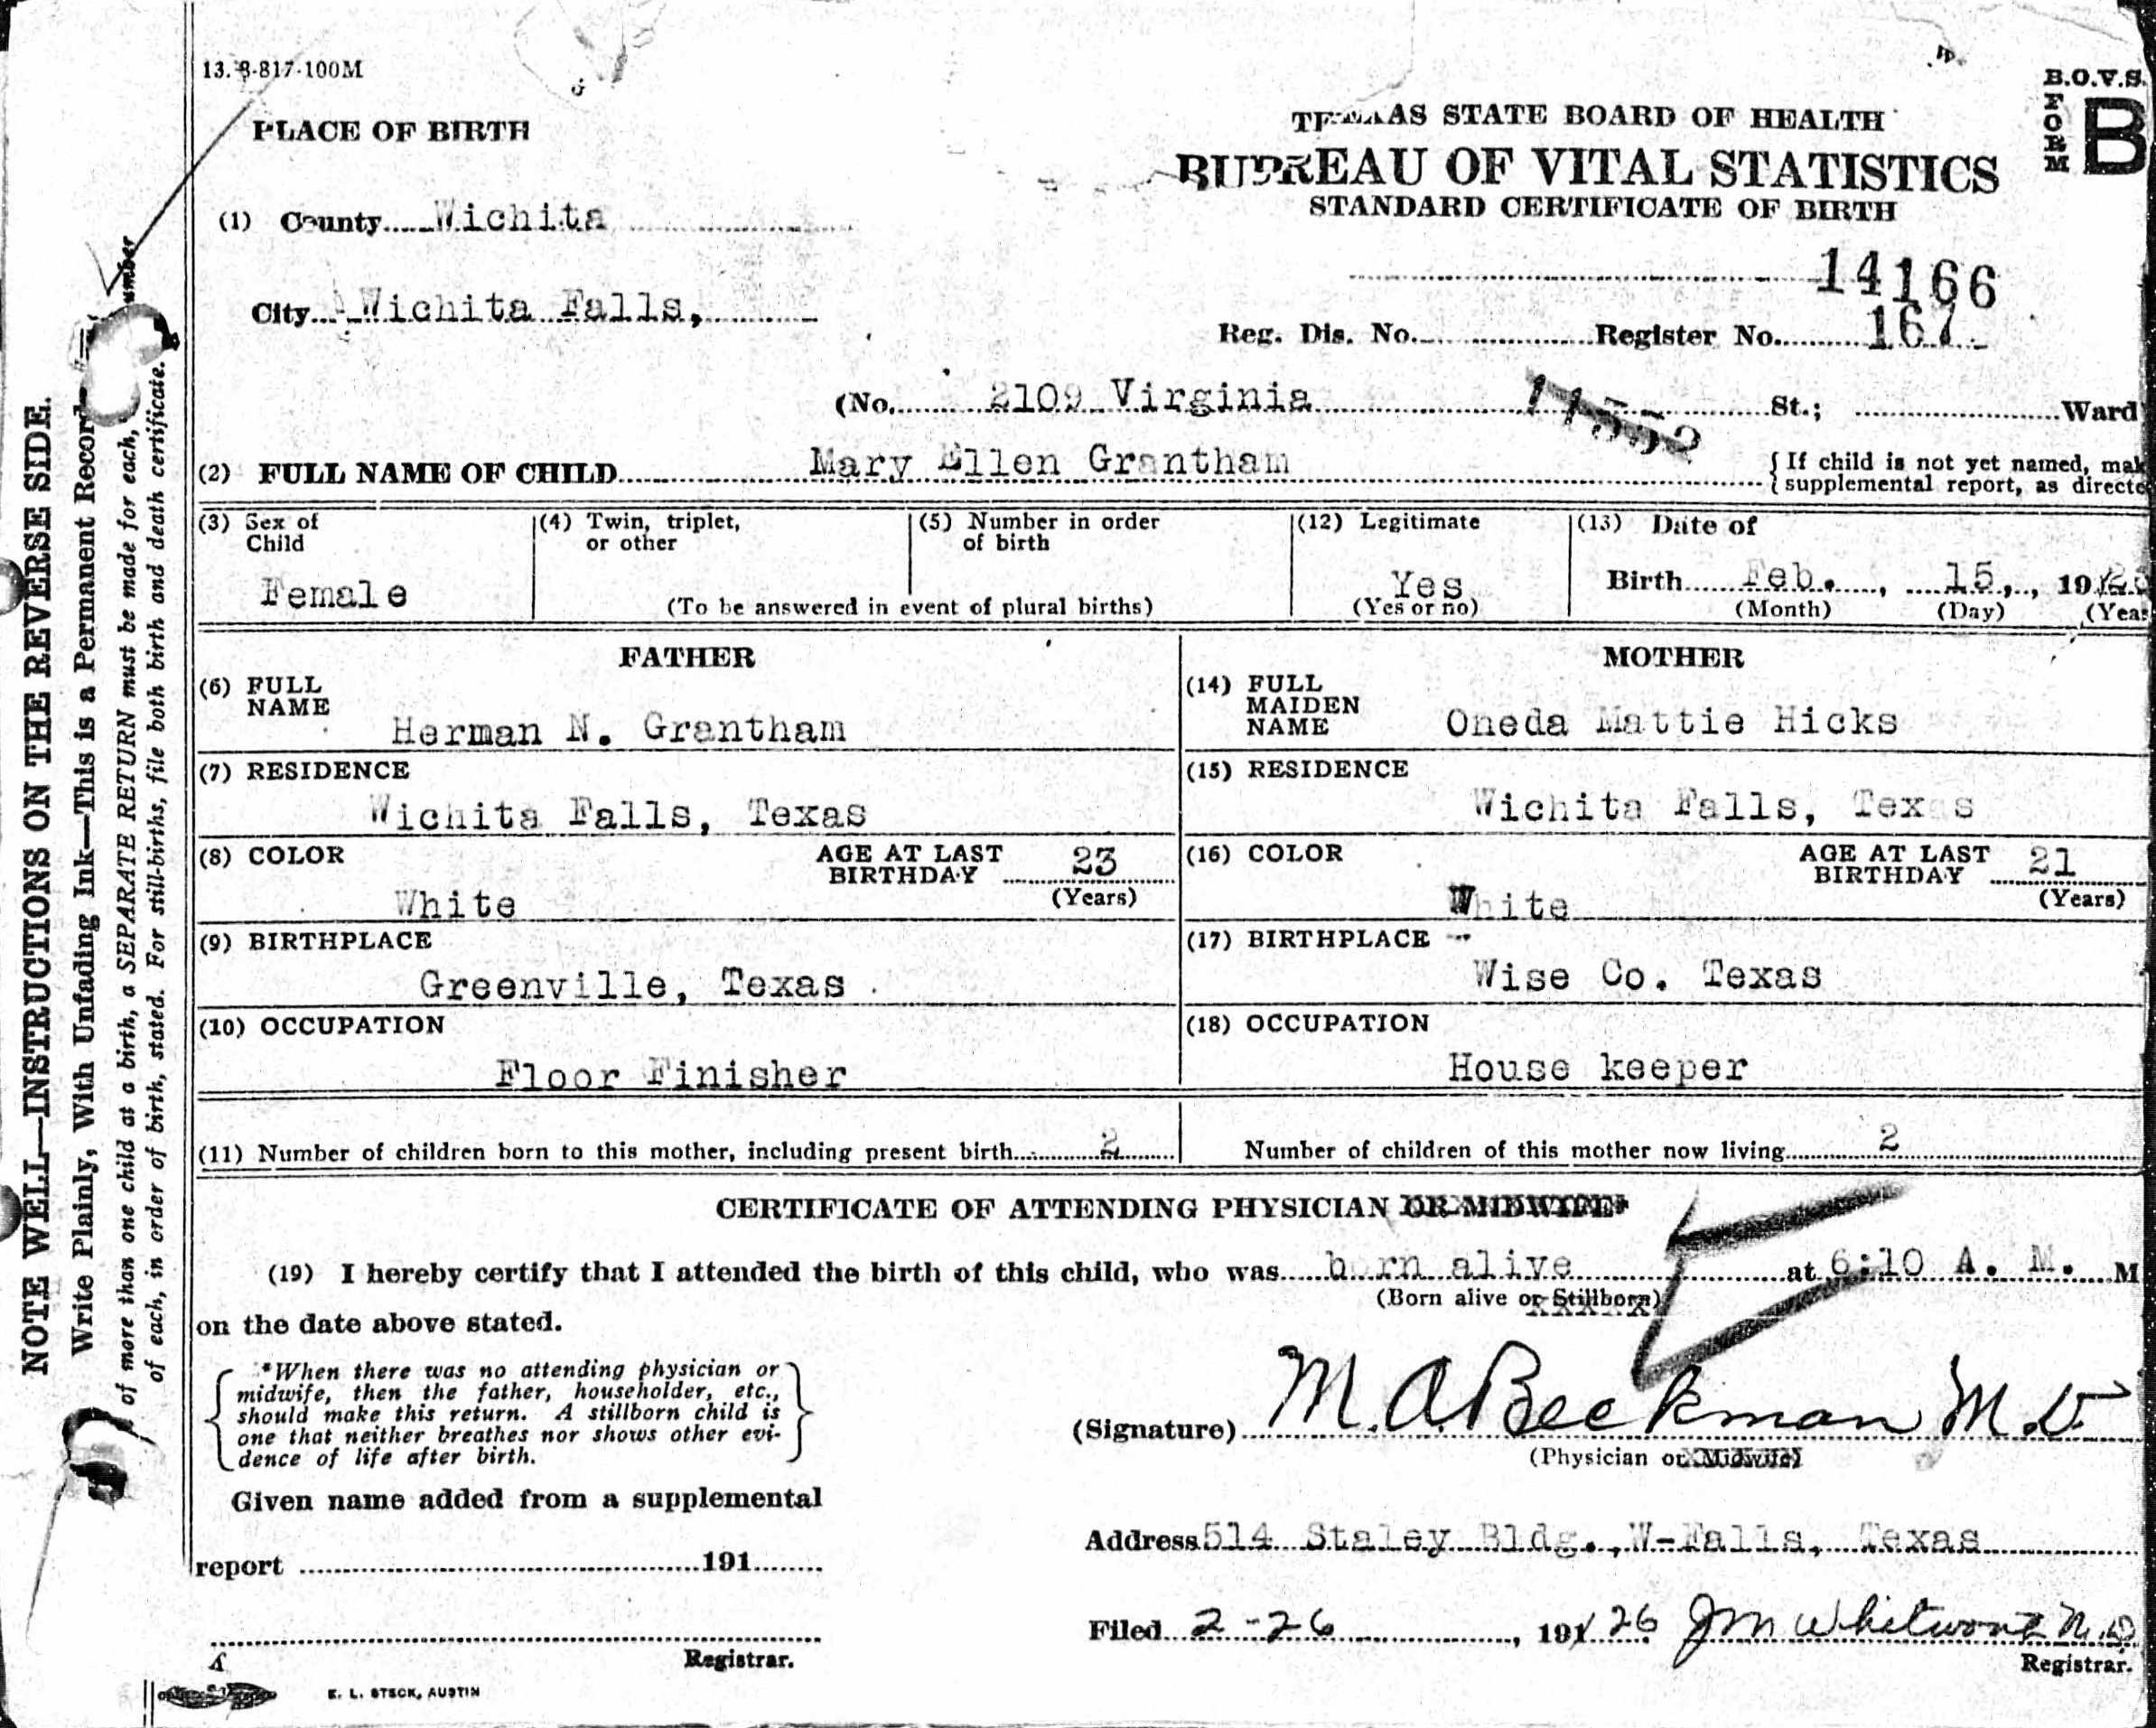 13.-8-817-100M
B.O.V.S.
FORM B
PLACE OF BIRTH
TEXAS STATE BOARD OF HEALTH
BUREAU OF VITAL STATISTICS
STANDARD CERTIFICATE OF BIRTH
(1) County Wichita
14166
City Wichita Falls,
Reg. Dis. No. Register No. 167
(No. 2109 Virginia St.; Ward
11552
(2) FULL NAME OF CHILD Mary Ellen Grantham
{If child is not yet named, mak
supplemental report, as directe
(3) Sex of Child
Female
(4) Twin, triplet, or other
(5) Number in order of birth
(To be answered in event of plural births)
(12) Legitimate
Yes
(Yes or no)
(13) Date of
Birth Feb., 15, 1926
(Month) (Day) (Year
FATHER
(6) FULL NAME
Herman N. Grantham
(7) RESIDENCE
Wichita Falls, Texas
(8) COLOR
White
AGE AT LAST BIRTHDAY 23
(Years)
(9) BIRTHPLACE
Greenville, Texas
(10) OCCUPATION
Floor Finisher
MOTHER
(14) FULL MAIDEN NAME
Oneda Mattie Hicks
(15) RESIDENCE
Wichita Falls, Texas
(16) COLOR
White
AGE AT LAST BIRTHDAY 21
(Years)
(17) BIRTHPLACE
Wise Co. Texas
(18) OCCUPATION
House keeper
(11) Number of children born to this mother, including present birth 2
Number of children of this mother now living 2
CERTIFICATE OF ATTENDING PHYSICIAN OR MIDWIFE*
(19) I hereby certify that I attended the birth of this child, who was born alive at 6:10 A. M. M
(Born alive or Stillborn)
on the date above stated.
*When there was no attending physician or
midwife, then the father, householder, etc.,
should make this return. A stillborn child is
one that neither breathes nor shows other evi-
dence of life after birth.
(Signature) M. A. Beckman M.D.
(Physician or Midwife)
Given name added from a supplemental
report 191
Registrar.
Address 514 Staley Bldg., W-Falls, Texas
Filed 2-26, 191 26 JM Whitworth M.D.
Registrar.
E. L. STECK, AUSTIN
NOTE WELL—INSTRUCTIONS ON THE REVERSE SIDE.
Write Plainly, With Unfading Ink—This is a Permanent Record
of more than one child at a birth, a SEPARATE RETURN must be made for each, number
of each, in order of birth, stated. For still-births, file both birth and death certificate.